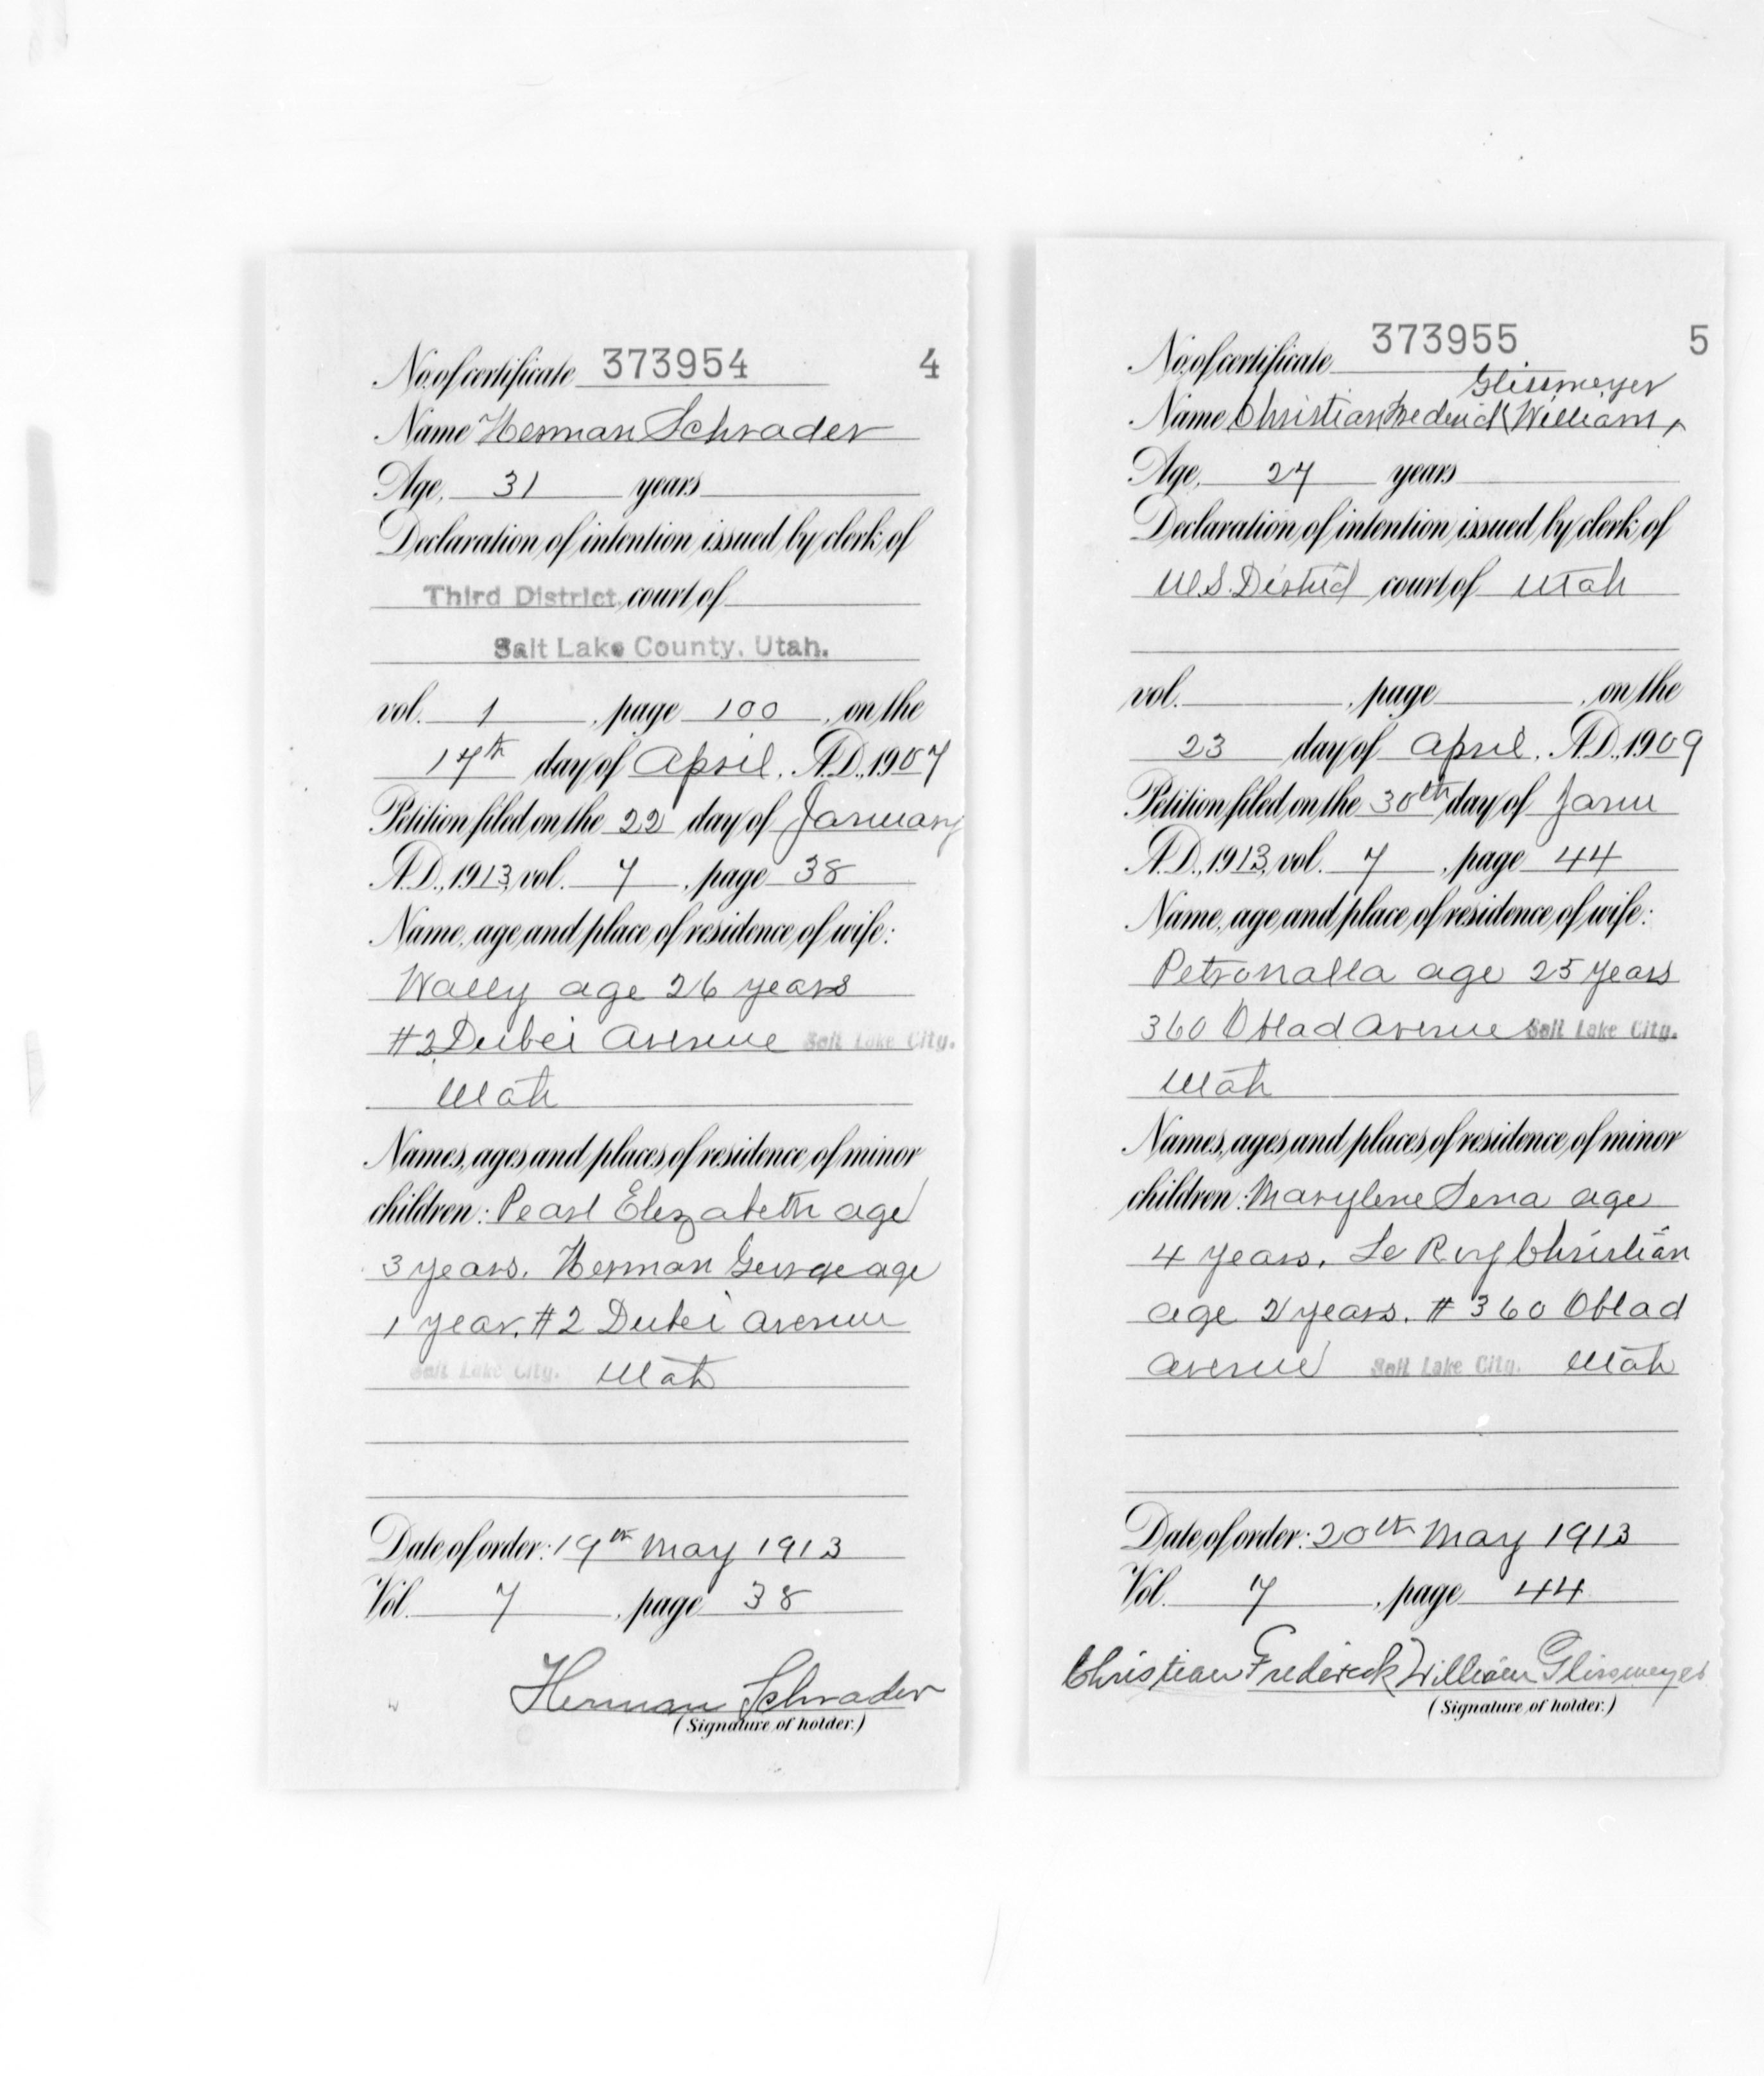 No. of certificate 373954 4
Name Herman Schrader
Age, 31 years
Declaration of intention issued by clerk of
Third District court of
Salt Lake County, Utah.
vol. 1, page 100, on the
17th day of April, A.D., 1907
Petition filed on the 22 day of January
A.D., 1913, vol. 7, page 38
Name, age and place of residence of wife:
Wally age 26 years
#2 Dubei Avenue Salt Lake City.
Utah
Names, ages and places of residence of minor
children: Pearl Elizabeth age
3 years. Herman George age
1 year. #2 Dubei Avenue
Salt Lake City. Utah
Date of order: 19th May 1913
Vol. 7, page 38
Herman Schrader
(Signature of holder.)
No. of certificate 373955 5
Glissmeyer
Name Christian Frederick William ^
Age, 27 years
Declaration of intention issued by clerk of
U.S. District court of Utah
vol. , page , on the
23 day of April, A.D., 1909
Petition filed on the 30th day of Janu
A.D., 1913, vol. 7, page 44
Name, age and place of residence of wife:
Petronalla age 25 years
360 Oblad Avenue Salt Lake City.
Utah
Names, ages and places of residence of minor
children: Marylene Sena age
4 years. Le Roy Christian
age 2 years. #360 Oblad
Avenue Salt Lake City. Utah
Date of order: 20th May 1913
Vol. 7, page 44
Christian Frederick William Glissmeyer
(Signature of holder.)